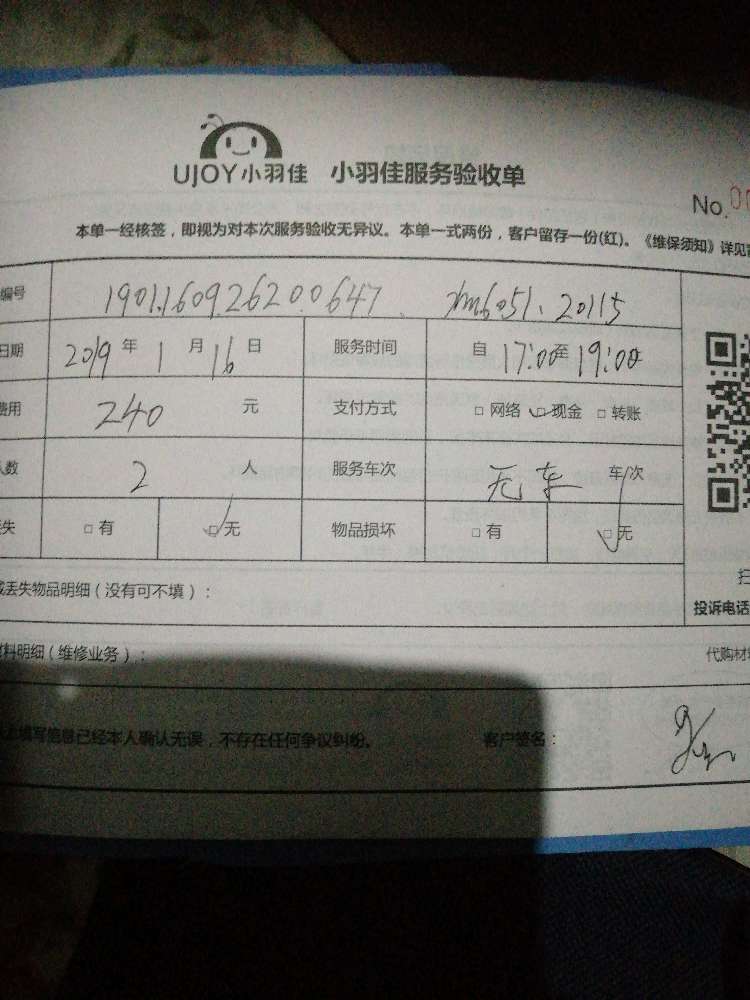 UJOY小羽佳 小羽佳服务验收单
No.
本单一经核签，即视为对本次服务验收无异议。本单一式两份，客户留存一份(红)。《维保须知》详见
编号 1901.1609.26200647
日期 2019 年 1 月 16 日 服务时间 自 17:00 至 19:00
费用 240 元 支付方式 □ 网络 □ 现金 □ 转账
人数 2 人 服务车次 无车 车/次
丢失 □ 有 □ 无 物品损坏 □ 有 □ 无
或丢失物品明细（没有可不填）：
扫
投诉电话
材料明细（维修业务）： 代购材
以上填写信息已经本人确认无误，不存在任何争议纠纷。 客户签名：